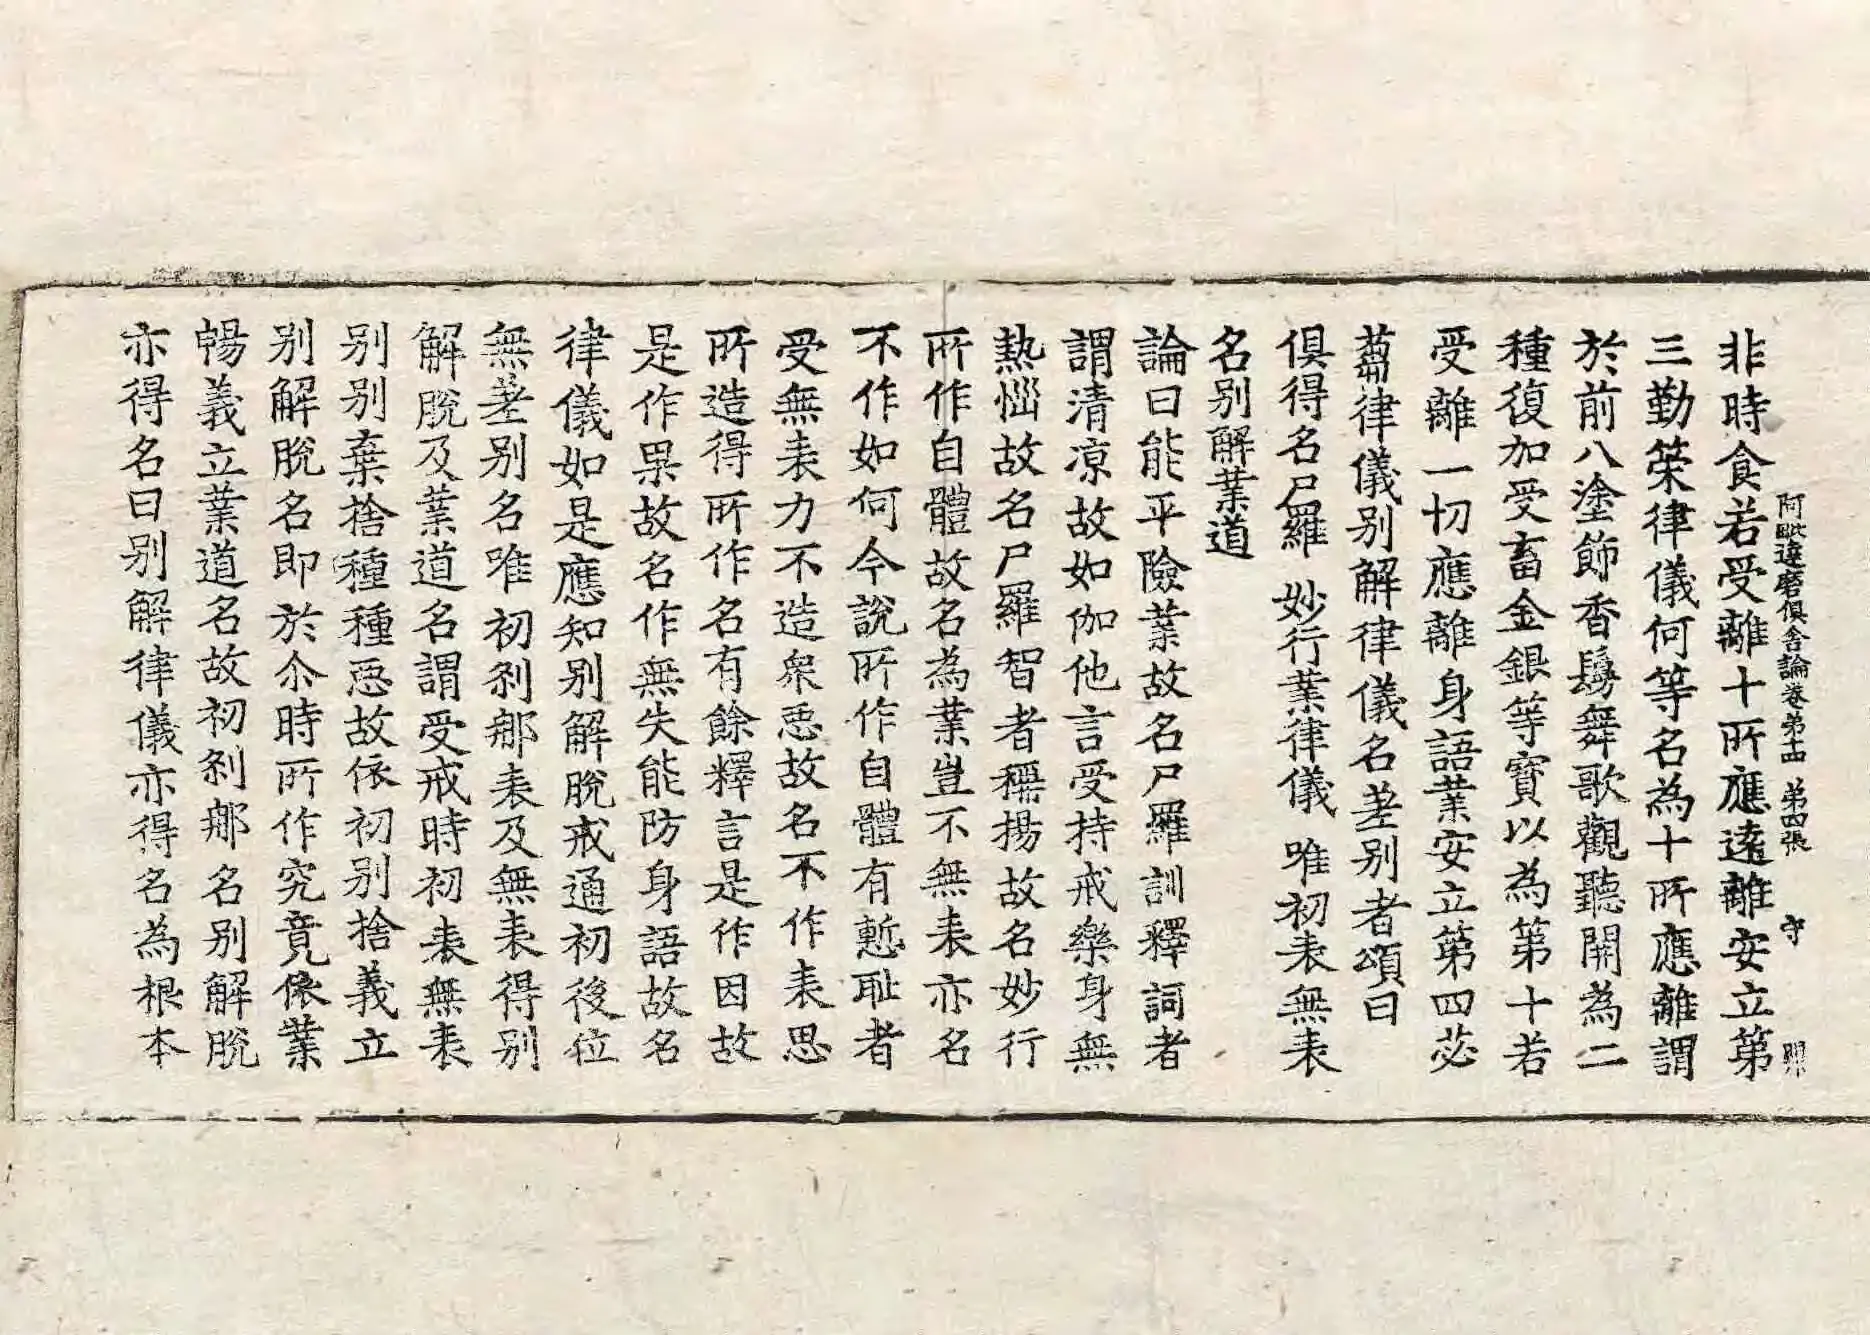 阿毗達磨俱舍論卷第十四 第四張 守
非時食若受離十所應遠離安立第
三勤策律儀何等名為十所應離謂
於前八塗飾香鬘舞歌觀聽開為二
種復加受畜金銀等寶以為第十若
受離一切應離身語業安立第四苾
蒭律儀別解律儀名差別者頌曰
俱得名尸羅 妙行業律儀 唯初表無表
名別解業道
論曰能平險業故名尸羅訓釋詞者
謂清涼故如伽他言受持戒樂身無
熱惱故名尸羅智者稱揚故名妙行
所作自體故名為業豈不無表亦名
不作如何今說所作自體有慙耻者
受無表力不造眾惡故名不作表思
所造得所作名有餘釋言是作因故
是作果故名作無失能防身語故名
律儀如是應知別解脫戒通初後位
無差別名唯初剎那表及無表得別
解脫及業道名謂受戒時初表無表
別別棄捨種種惡故依初別捨義立
別解脫名即於尒時所作究竟依業
暢義立業道名故初剎那名別解脫
亦得名曰別解律儀亦得名為根本